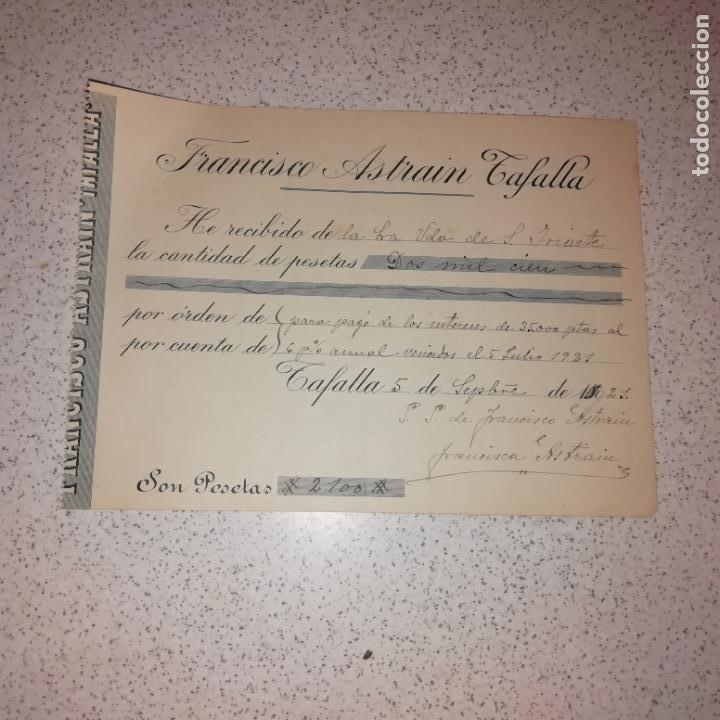 Francisco Astrain Tafalla
He recibido de la Sra Vda de S. Iriarte
la cantidad de pesetas Dos mil cien
por órden de para pago de los intereses de 35.000 ptas al
por cuenta de 6 p% annal vencidos el 5 Julio 1921
Tafalla 5 de Sepbre de 1921.
P. P. de Francisco Astrain
Francisca Astrain
Son Pesetas # 2100 #
FRANCISCO ASTRAIN TAFALLA
todocoleccion